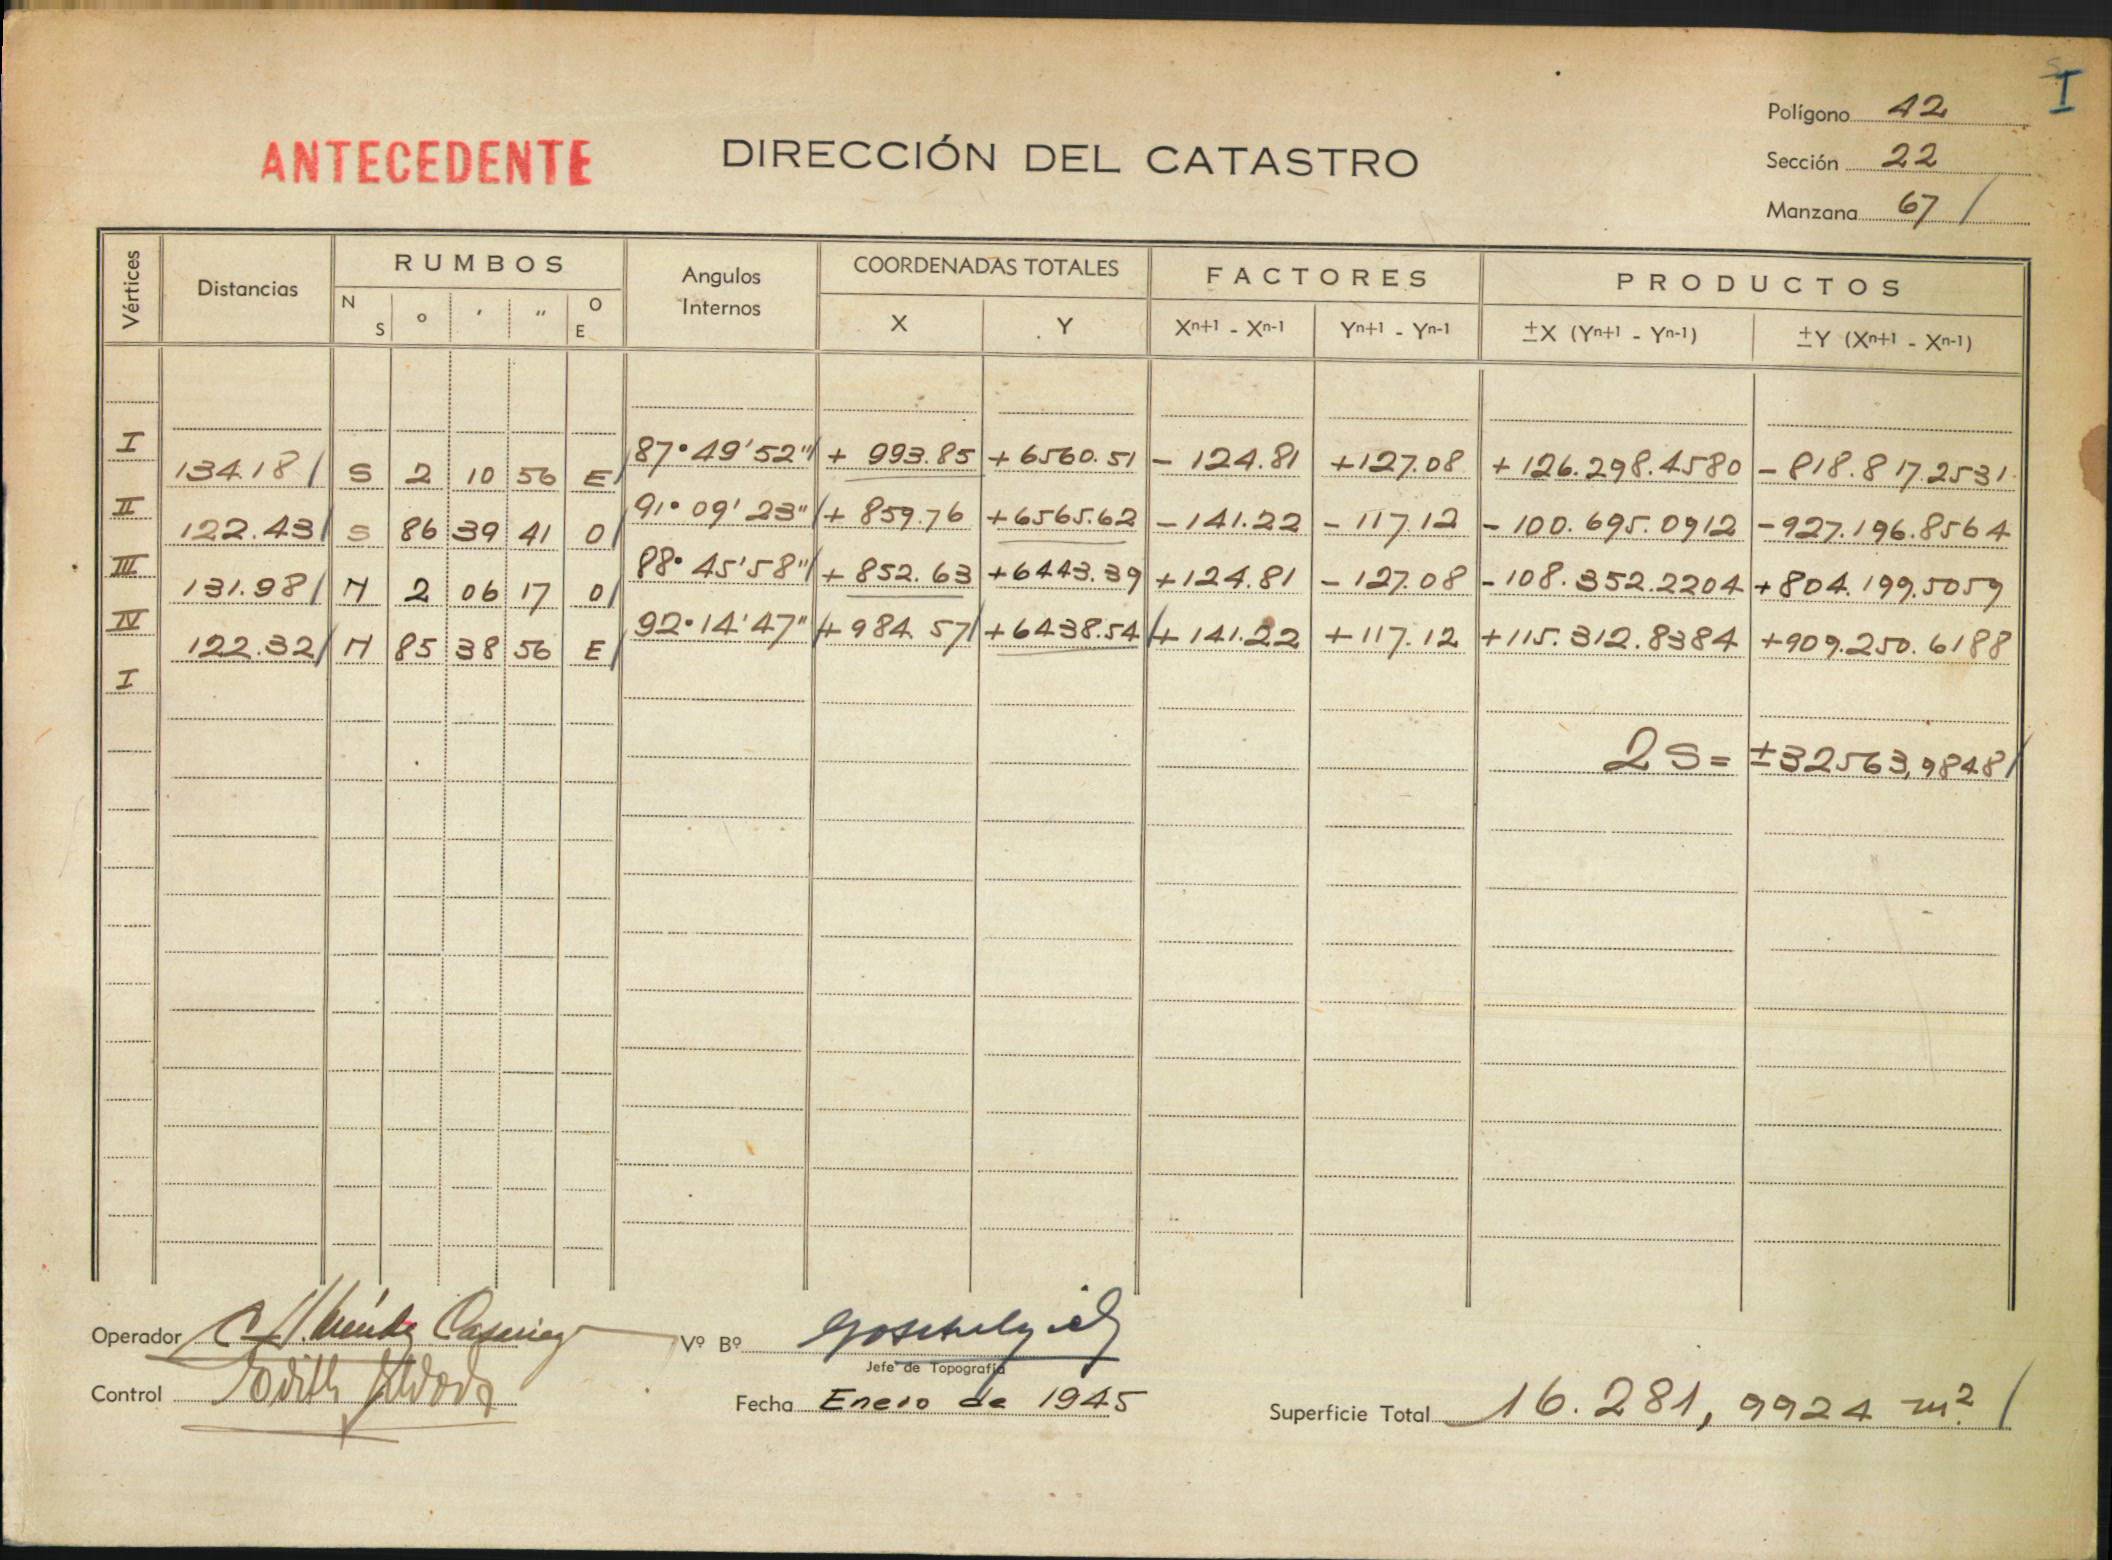 I
Polígono 42
ANTECEDENTE DIRECCIÓN DEL CATASTRO
Sección 22
Manzana 67 /
Vértices Distancias RUMBOS Angulos Internos COORDENADAS TOTALES FACTORES PRODUCTOS
N S o ′ ″ O E X Y Xn+1 - Xn-1 Yn+1 - Yn-1 ±X (Yn+1 - Yn-1) ±Y (Xn+1 - Xn-1)
I 87°49'52"/ + 993.85 +6560.51 - 124.81 +127.08 +126.298.4580 -818.817.2531
134.18/ S 2 10 56 E/
II 91°09'23"/ + 859.76 +6565.62 -141.22 -117.12 -100.695.0912 -927.196.8564
122.43/ S 86 39 41 O/
III 88°45'58"/ + 852.63 +6443.39 +124.81 -127.08 -108.352.2204 +804.199.5059
131.98/ N 2 06 17 O/
IV 92°14'47"/ +984.57/ +6438.54/ +141.22 +117.12 +115.312.8384 +909.250.6188
122.32/ N 85 38 56 E/
I
2S= ±32563,9848/
Operador Vº Bº
Jefe de Topografía
Control Edith
Fecha Enero de 1945
Superficie Total 16.281,9924 m² /